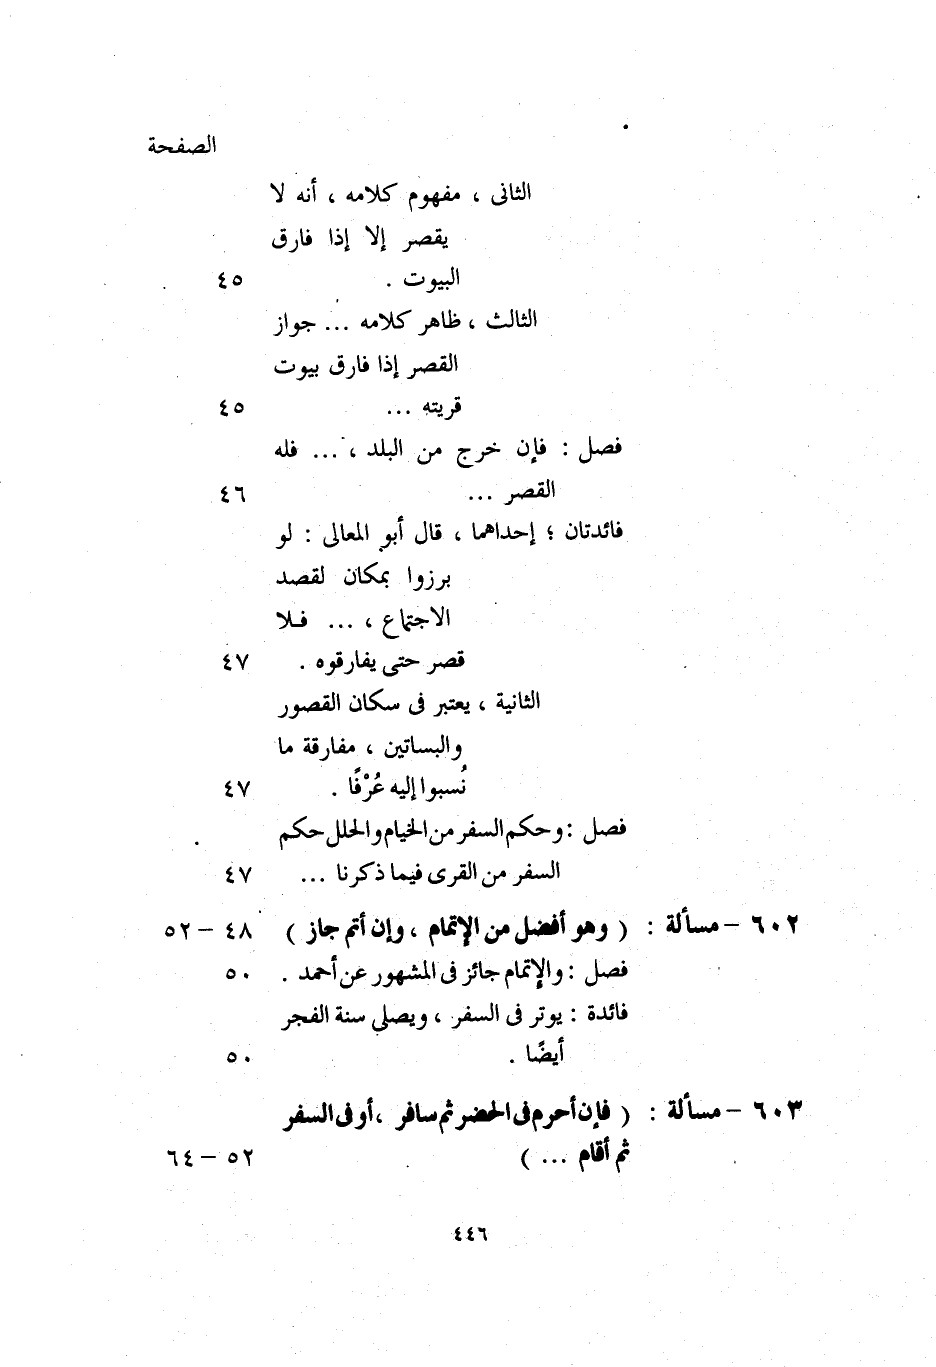 الصفحة
الثانى ، مفهوم كلامه ، أنه لا
يقصر إلا إذا فارق
البيوت . ٤٥
الثالث ، ظاهر كلامه ... جواز
القصر إذا فارق بيوت
قريته ... ٤٥
فصل : فإن خرج من البلد ، ... فله
القصر ... ٤٦
فائدتان ؛ إحداهما ، قال أبو المعالى : لو
برزوا بمكان لقصد
الاجتماع ، ... فلا
قصر حتى يفارقوه . ٤٧
الثانية ، يعتبر فى سكان القصور
والبساتين ، مفارقة ما
نُسبوا إليه عُرْفًا . ٤٧
فصل : وحكم السفر من الخيام والحلل حكم
السفر من القرى فيما ذكرنا ... ٤٧
٦٠٢ – مسألة : ( وهو أفضل من الإتمام ، وإن أتم جاز ) ٤٨ – ٥٢
فصل : والإتمام جائز فى المشهور عن أحمد . ٥٠
فائدة : يوتر فى السفر ، ويصلي سنة الفجر
أيضًا . ٥٠
٦٠٣ – مسألة : ( فإن أحرم فى الحضر ثم سافر ، أو فى السفر
ثم أقام ... ) ٥٢ – ٦٤
٤٤٦